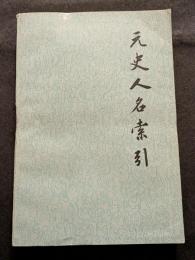 元史人名索引